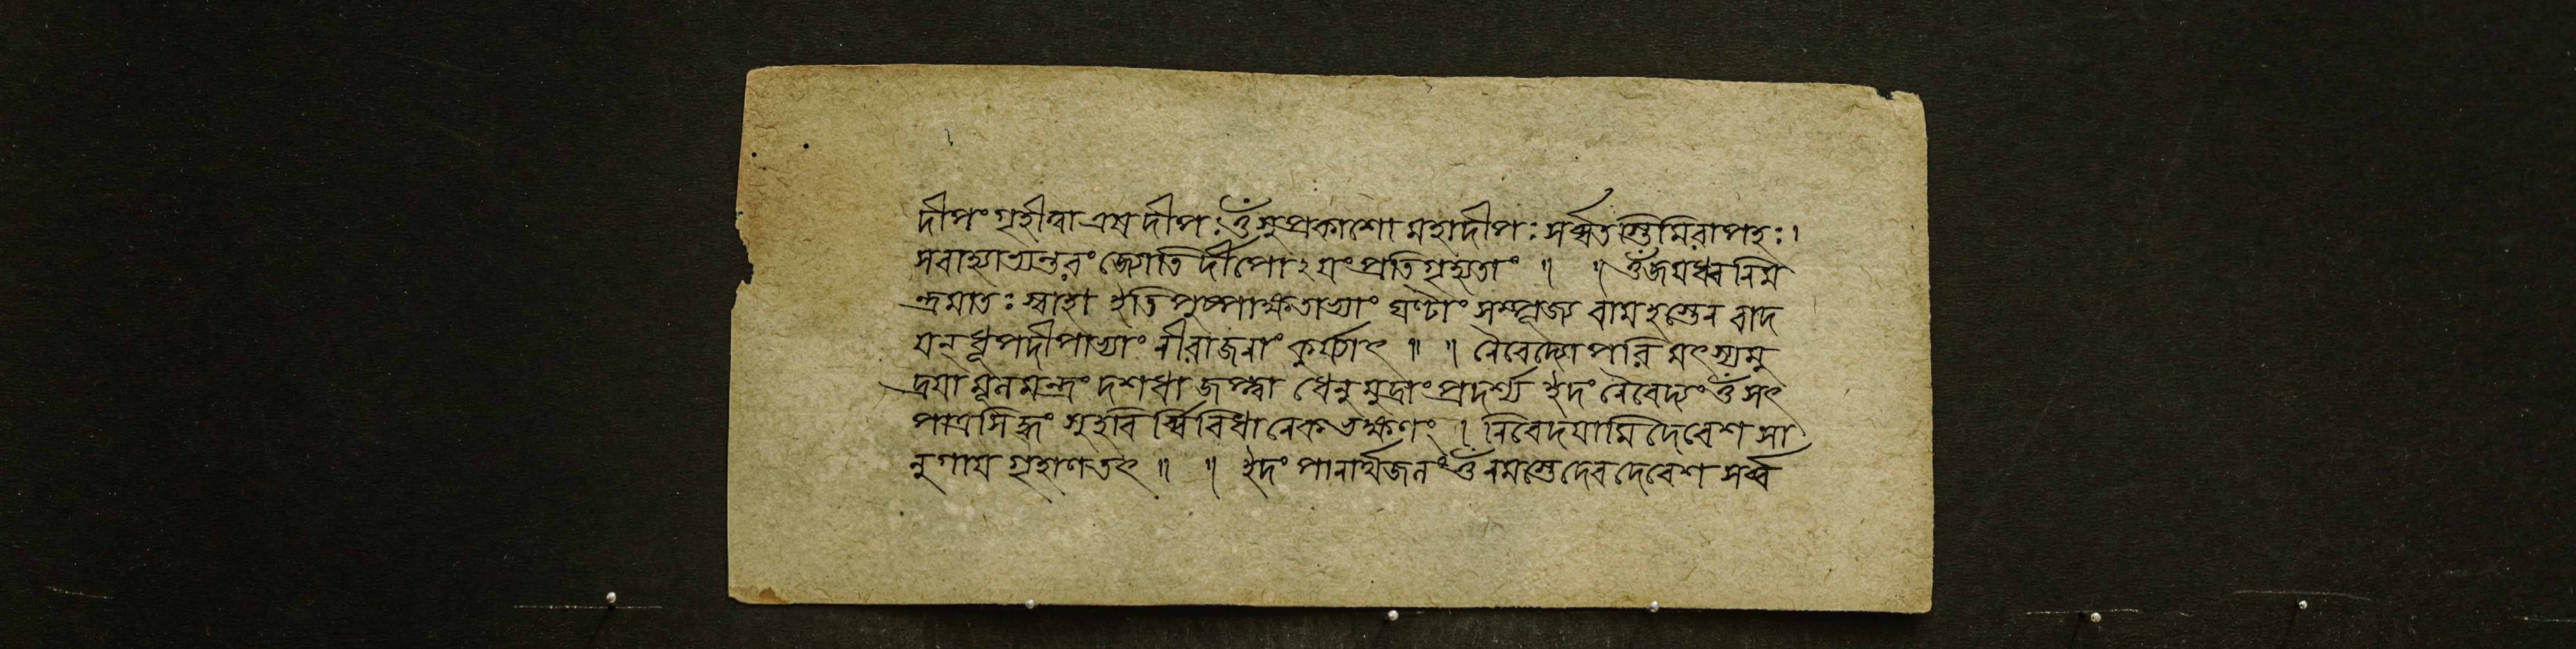 দীপং গৃহীত্বা এষ দীপঃ ওঁ সুপ্রকাশো মহাদীপঃ সর্ব্বতস্তিমিরাপহঃ।
সবাহ্যাভ্যন্তরং জ্যোতির্দীপোঽয়ং প্রতিগৃহ্যতাং ॥ ॥ ওঁ জয়ধ্বনিম
ন্ত্রমাতঃ স্বাহা ইতি পুষ্পাক্ষতাভ্যাং ঘণ্টাং সম্পূজ্য বামহস্তেন বাদ
য়ন্ ধূপদীপাভ্যাং নীরাজনাং কুর্য্যাৎ ॥ ॥ নৈবেদ্যোপরি মৎস্যমু
দ্রয়া মূলমন্ত্রং দশধা জপ্ত্বা ধেনুমুদ্রাং প্রদর্শ্য ইদং নৈবেদ্যং ওঁ সৎ
পাত্রসিদ্ধং সুহবির্ব্বিবিধানেকভক্ষণং। নিবেদয়ামি দেবেশ সা
নুগায় গৃহাণ তৎ ॥ ॥ ইদং পানার্থজলং ওঁ নমস্তে দেবদেবেশ সর্ব্ব